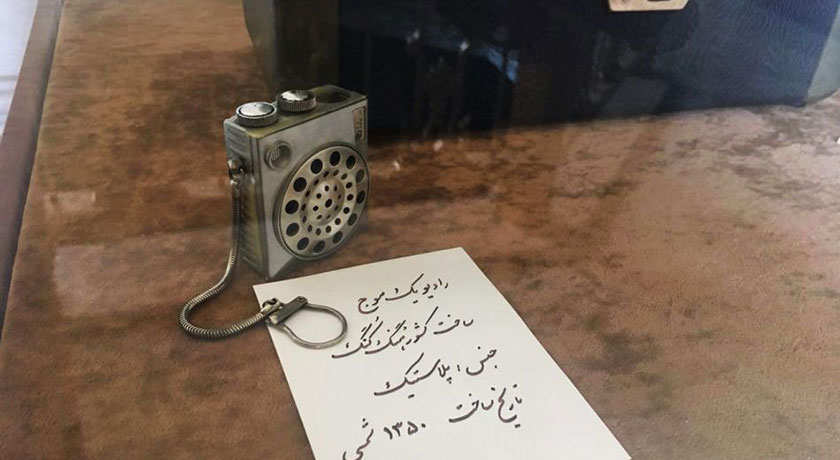 رادیو یک موج
ساخت کشور هنگ کُنگ
جنس : پلاستیک
تاریخ ساخت ۱۳۵۰ شمسی